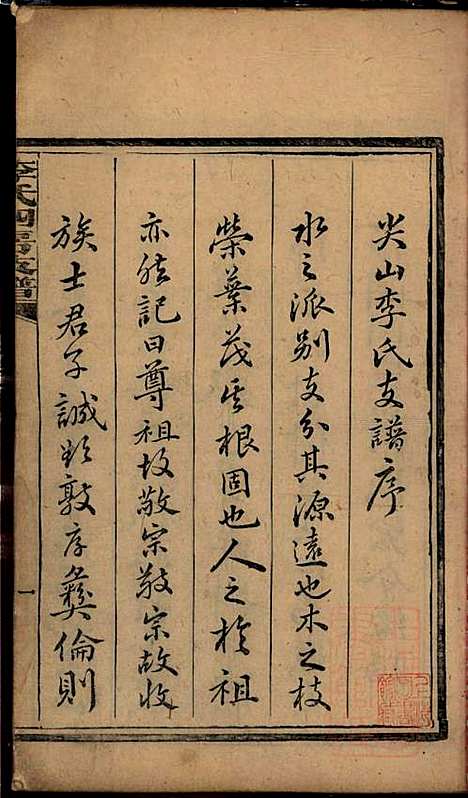 尖山李氏支譜序
水之派別支分其源遠也木之枝
榮葉茂其根固也人之於祖
亦然記曰尊祖故敬宗敬宗故收
族士君子誠欲敦序彝倫則
一